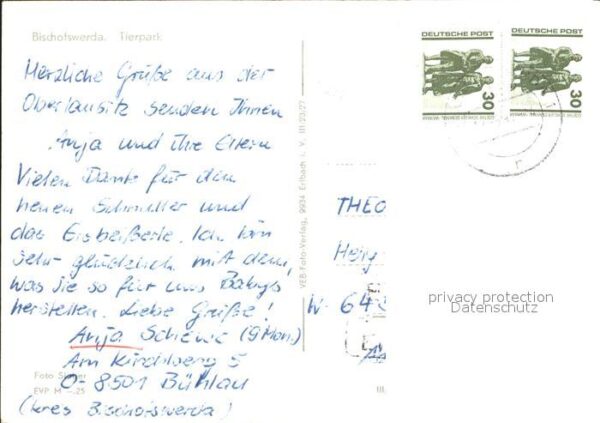 Bischofswerda. Tierpark
Herzliche Grüße aus der
Oberlausitz senden Ihnen
Anja und ihre Eltern
Vielen Dank für den
neuen Schnuller und
das Eisbeißerle. Ich bin
sehr glücklich mit dem,
was sie so für uns Babys
herstellen. Liebe Grüße!
Anja (9 Mon.)
Am Kirchberg 5
O-8501 Bühlau
(Kreis Bischofswerda)
Foto
EVP M -.25
VEB-Foto-Verlag, 9934 Erlbach i. V. III/23/27
DEUTSCHE POST
30
DEUTSCHE POST
30
THEO
W-643
privacy protection
Datenschutz
III.